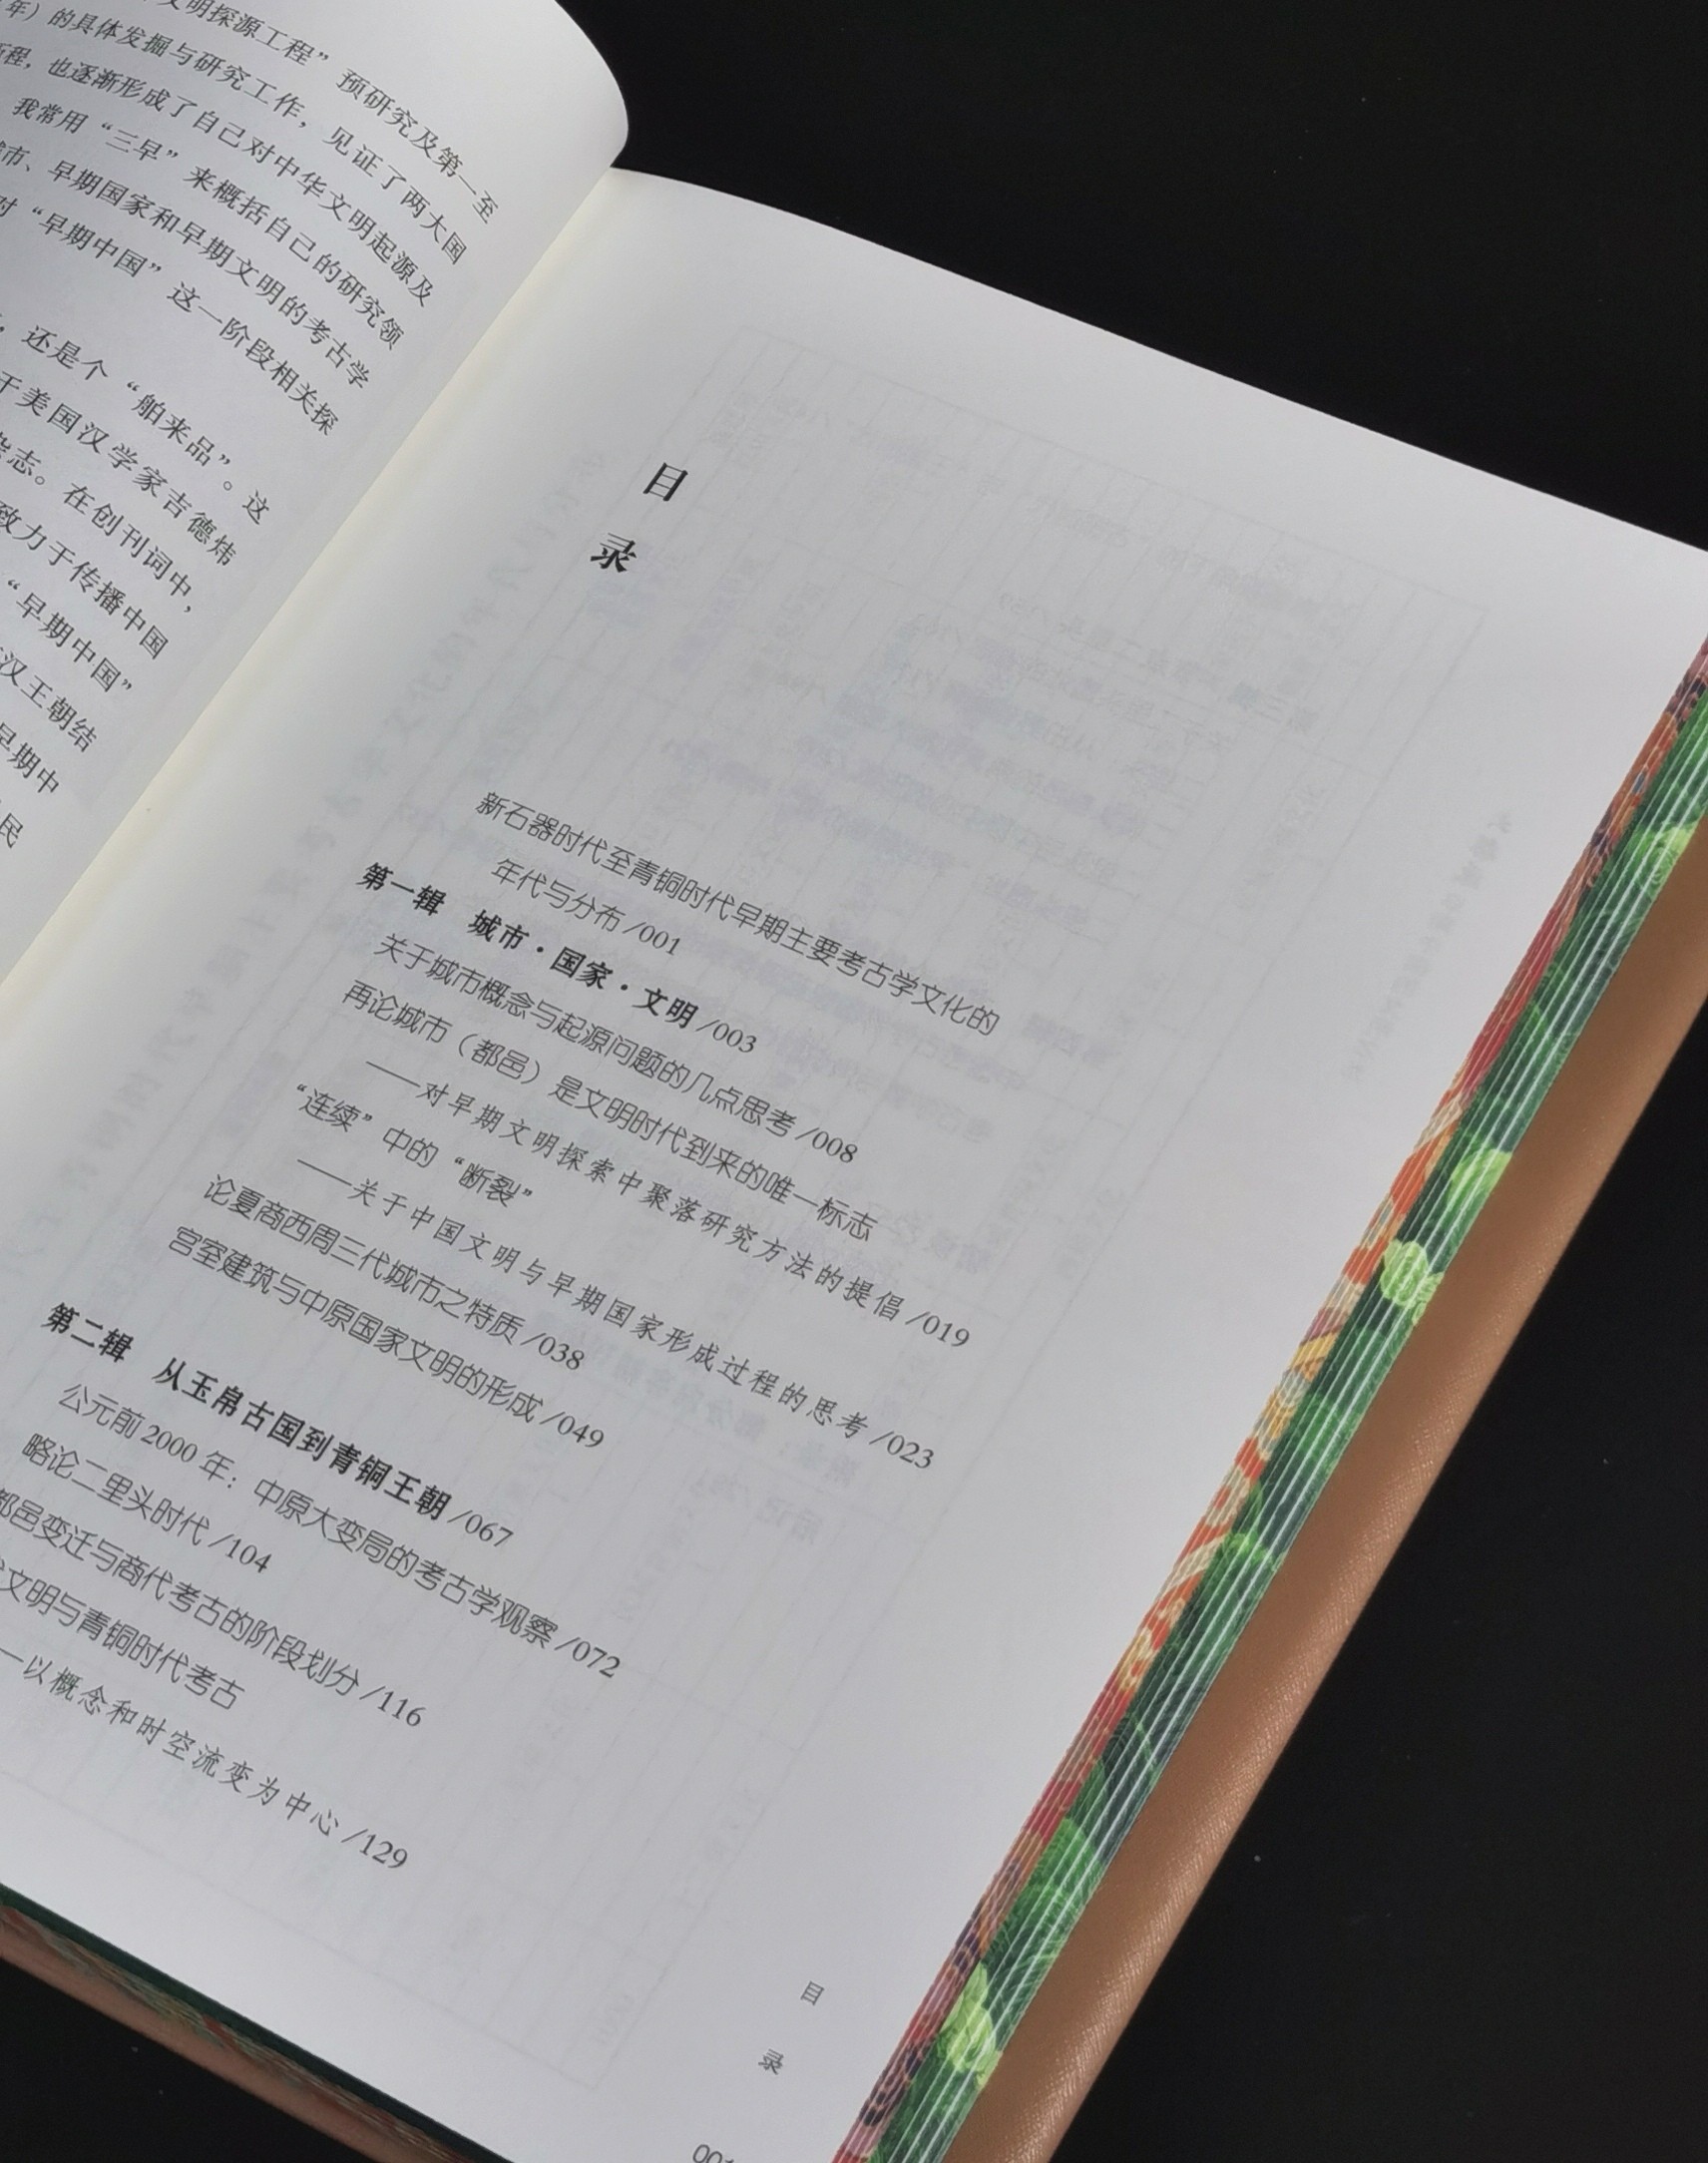 文明探源工程”预研究及第一至
年）的具体发掘与研究工作，见证了两大国
程，也逐渐形成了自己对中华文明起源及
我常用“三早”来概括自己的研究领
市、早期国家和早期文明的考古学
对“早期中国”这一阶段相关探
，还是个“舶来品”。这
于美国汉学家吉德炜
杂志。在创刊词中，
致力于传播中国
“早期中国”
汉王朝结
早期中
民
目
录
新石器时代至青铜时代早期主要考古学文化的
年代与分布 /001
第一辑 城市·国家·文明 /003
关于城市概念与起源问题的几点思考 /008
再论城市（都邑）是文明时代到来的唯一标志
——对早期文明探索中聚落研究方法的提倡 /019
“连续”中的“断裂”
——关于中国文明与早期国家形成过程的思考 /023
论夏商西周三代城市之特质 /038
宫室建筑与中原国家文明的形成 /049
第二辑 从玉帛古国到青铜王朝 /067
公元前 2000 年：中原大变局的考古学观察 /072
略论二里头时代 /104
都邑变迁与商代考古的阶段划分 /116
文明与青铜时代考古
—以概念和时空流变为中心 /129
目
录